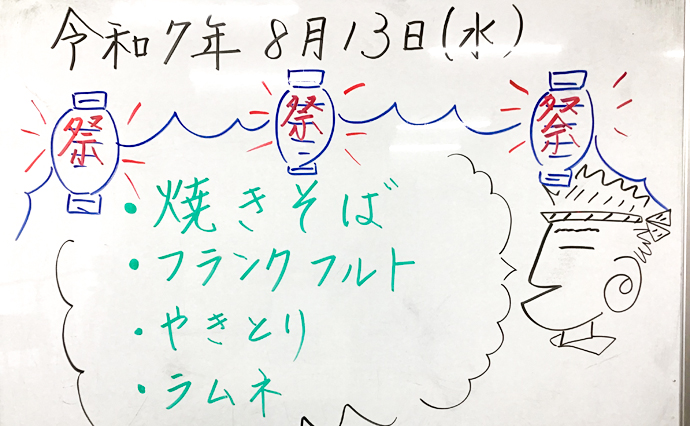 令和7年 8月13日(水)
祭 祭 祭
・焼きそば
・フランクフルト
・やきとり
・ラムネ